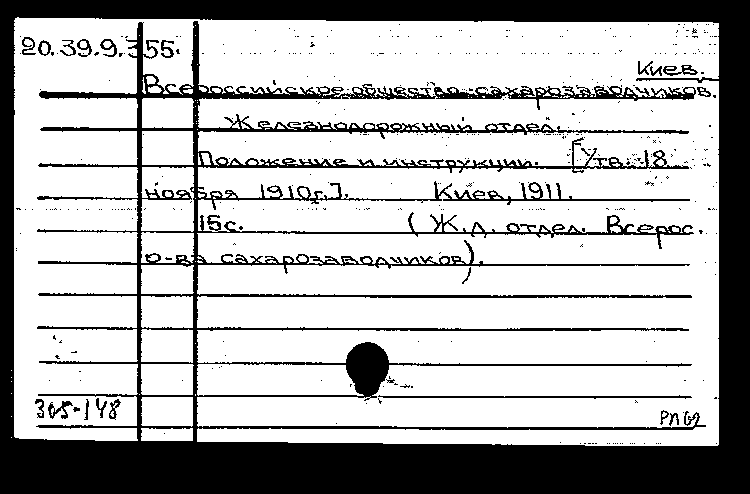 20.39.9.355.
Киев.
Всероссийское общество сахарозаводчиков.
Железнодорожный отдел.
Положение и инструкции. [Утв. 18
ноября 1910г.]. Киев, 1911.
15с. (Ж.д. отдел. Всерос.
о-ва сахарозаводчиков).
305-148